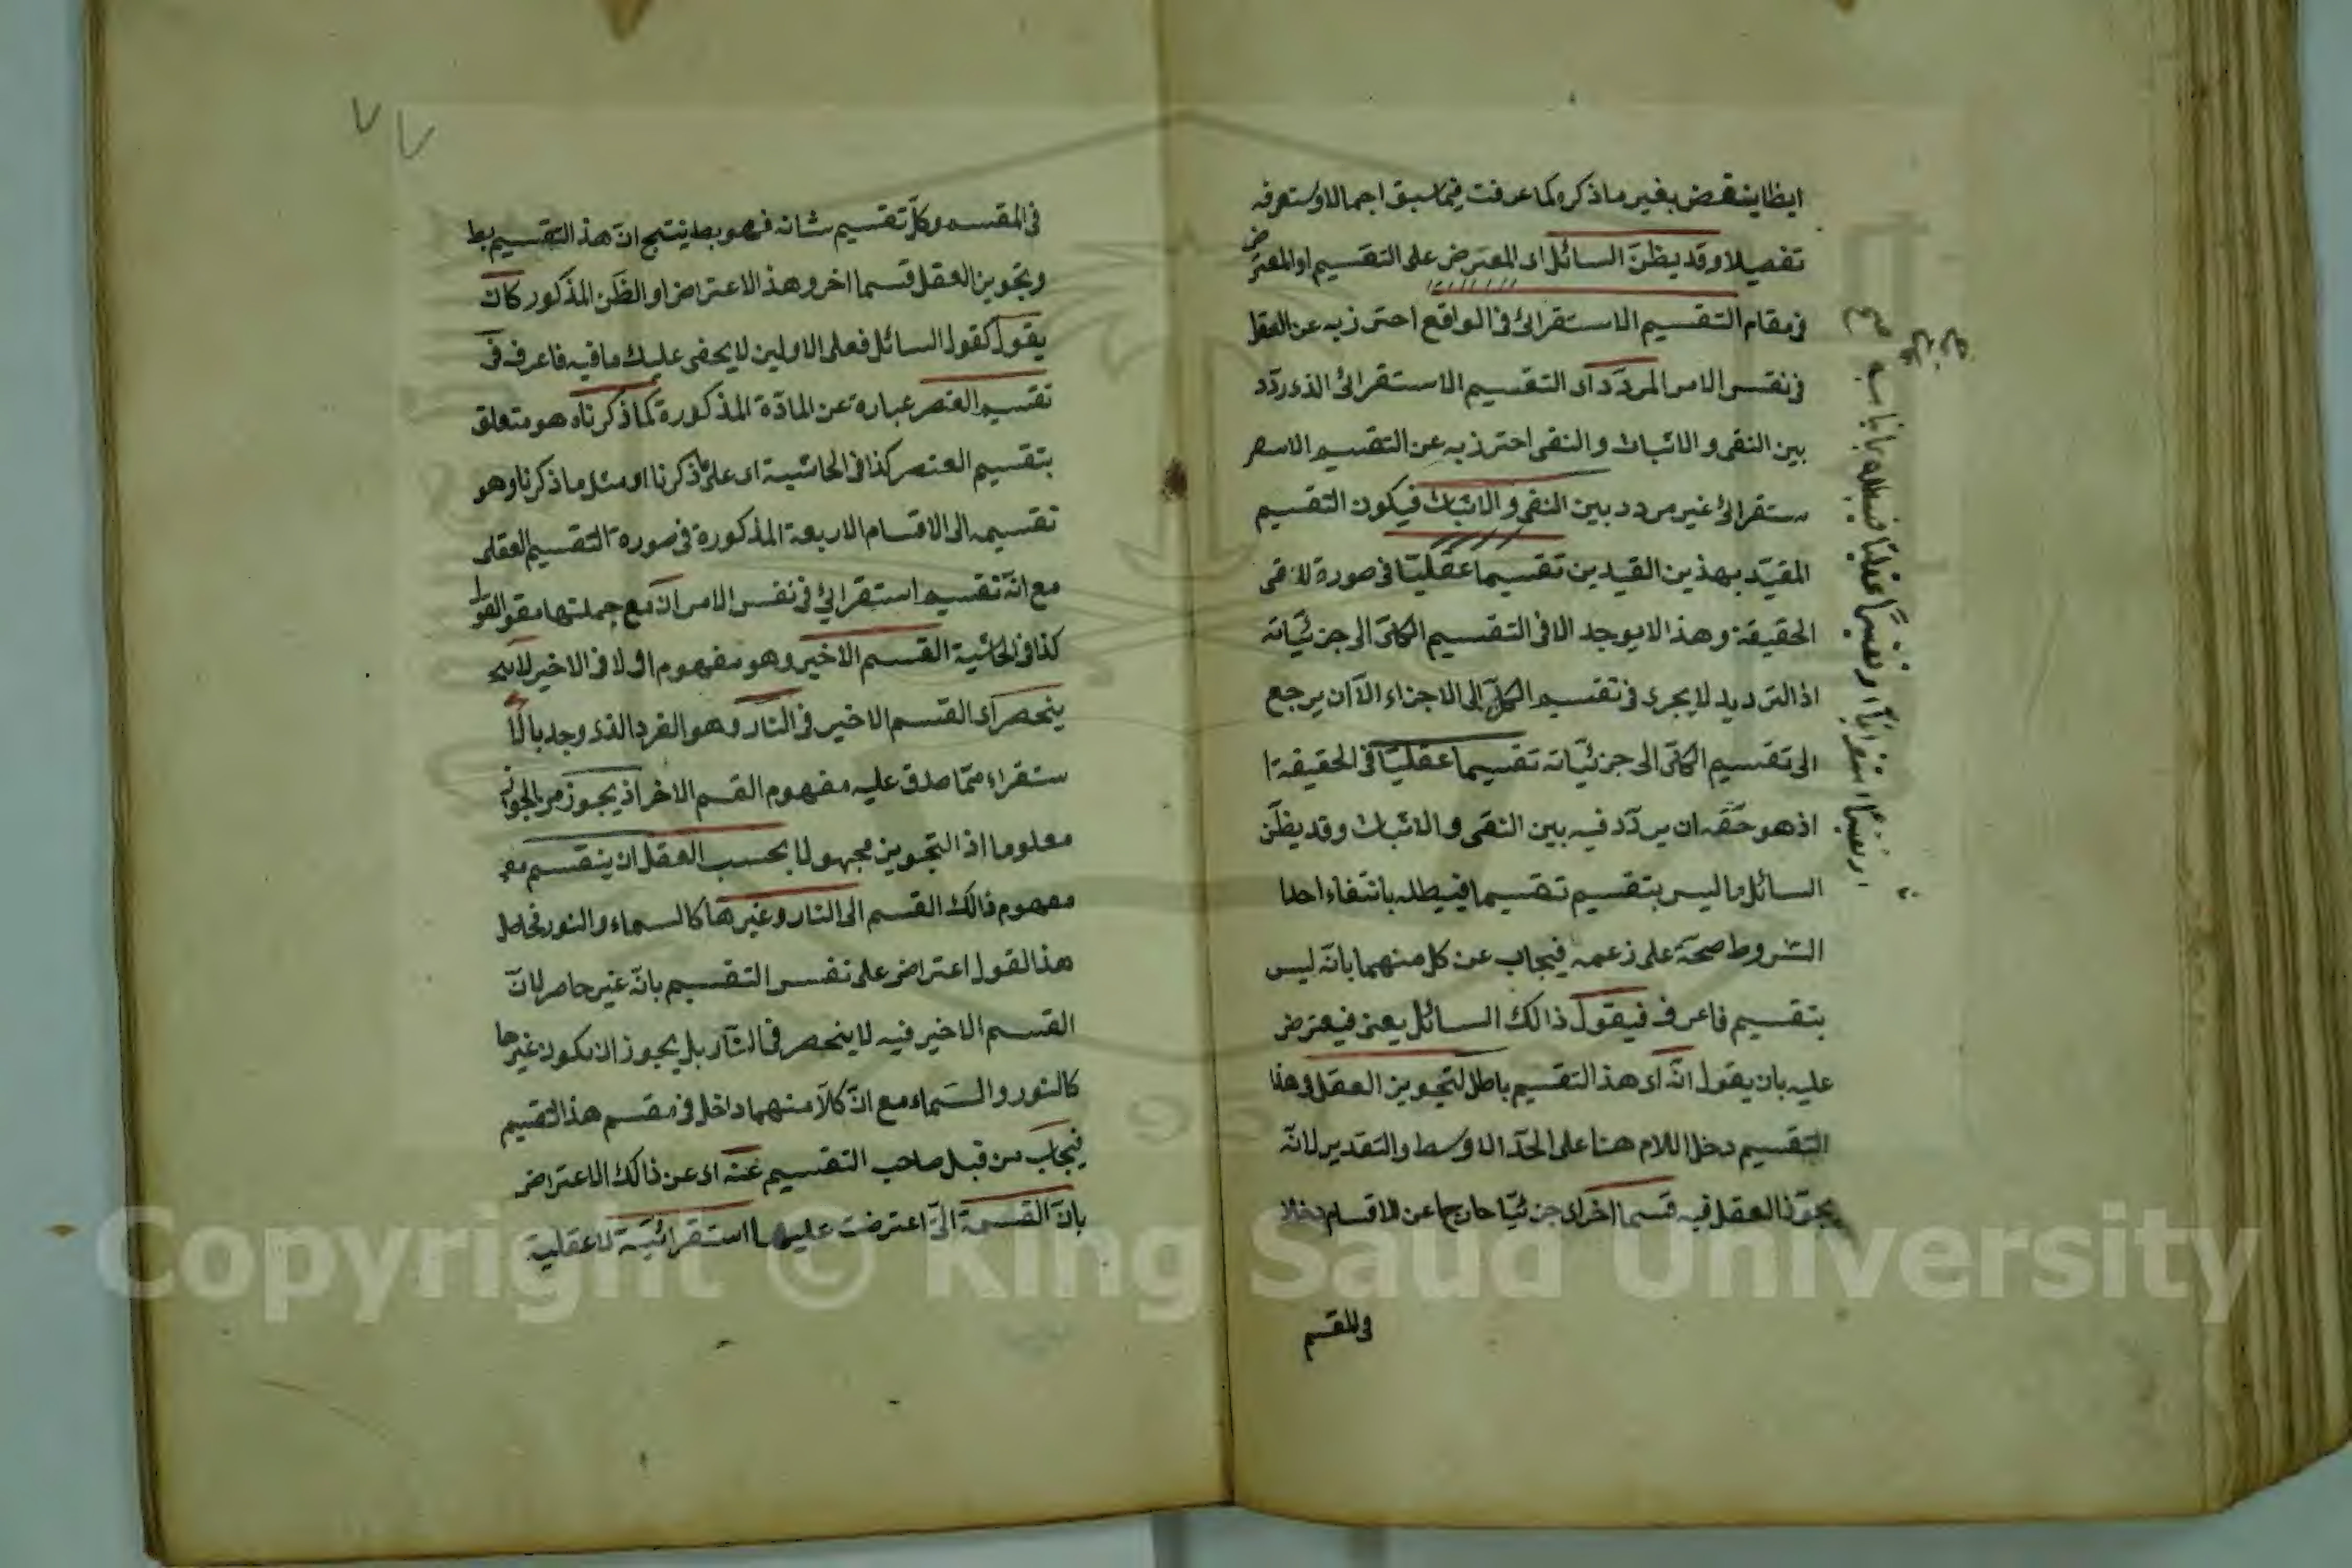 ايظا ينتقض بغير ما ذكر وكما عرفت فيما سبق اجمالا وستعرفه
تفصيلا وقد يظنّ السائل اى المعترض على التقسيم او المعترض
فى مقام التقسيم الاستقرائى فى الواقع احترز به عن العقل
فى نفس الامر المردّد اى التقسيم الاستقرائى الذى ردّد
بين النفى والاثبات والنفى احترز به عن التقسيم الاسع
ستقرائى غير مردد بين النفى والاثبات فيكون التقسيم
المقيّد بهذين القيدين تقسيما عقليّا فى صورة لا فى
الحقيقة وهذا لا يوجد الا فى التقسيم الكلّى الى جزئيّاته
اذ الترديد لا يجرى فى تقسيم الكلّ الى الاجزاء الاّ ان يرجع
الى تقسيم الكلّى الى جزئيّاته تقسيما عقليّا فى الحقيقة ا
اذ هو حقّه ان يردّد فيه بين النفى والاثبات وقد يظنّ
السائل ما ليس بتقسيم تقسيما فيبطله بانتفاء احدا
الشروط صحّة على زعمه فيجاب عن كل منهما بانّه ليس
بتقسيم فاعرف فيقول ذالك السائل يعنى فيعترض
عليه بان يقول انّه اى هذ التقسيم باطل لتجويز العقل فى هذا
التقسيم دخل اللام هنا على الحدّ الاوسط والتقدير لانّه
يجوّز العقل فيه قسما اخر اى جزئيّا خارجا عن الاقسام دخلا
فى المقسم
ض
او تقسيما استقرائيّا او تقسيمًا عقليّا فيبطله
فى المقسم وكلّ تقسيم شانه فهو بط ينتج انّ هذ التقسيم بط
وتجويز العقل قسما اخر وهذ الاعتراض او الظّن المذكور كان
يقول كقول السائل فعلى الاولين لا يخفى عليك ما فيه فاعرف فى
تقسيم العنصر عبارة عن المادّة المذكورة كما ذكرناه هو متعلق
بتقسيم العنصر كذا فى الحاشية اى على ما ذكرنا او مثل ما ذكرنا وهو
تقسيمه الى الاقسام الاربعة المذكورة فى صورة التقسيم العقلى
مع انّه تقسيم استقرائى فى نفس الامر انّ مع جملتها مقو القول
كذا فى الحاشية القسم الاخير وهو مفهوم او لا فى الاخير لا
ينحصر اى القسم الاخير فى النّار وهو الفرد الذى وجد بالا
ستقراء ممّا صدق عليه مفهوم القسم الاخر اذ يجوز من الجواز
معلوما اذ التجويز مجهولا بحسب العقل ان ينقسم مفـ
مفهوم ذالك القسم الى النار وغيرها كالسماء والنور فحاصل
هذ القول اعتراض على نفس التقسيم بانّه غير حاصر لانّ
القسم الاخير فيه لا ينحصر فى النّار بل يجوز ان يكون غيرها
كالنور والسّماء مع انّ كلاّ منهما داخل فى مقسم هذ التقسيم
فيجاب من قبل صاحب التقسيم عنه اى عن ذالك الاعتراض
بانّ القسمة الّتى اعترضت عليها استقرائيّة لا عقلية
٧٧
Copyright © King Saud University